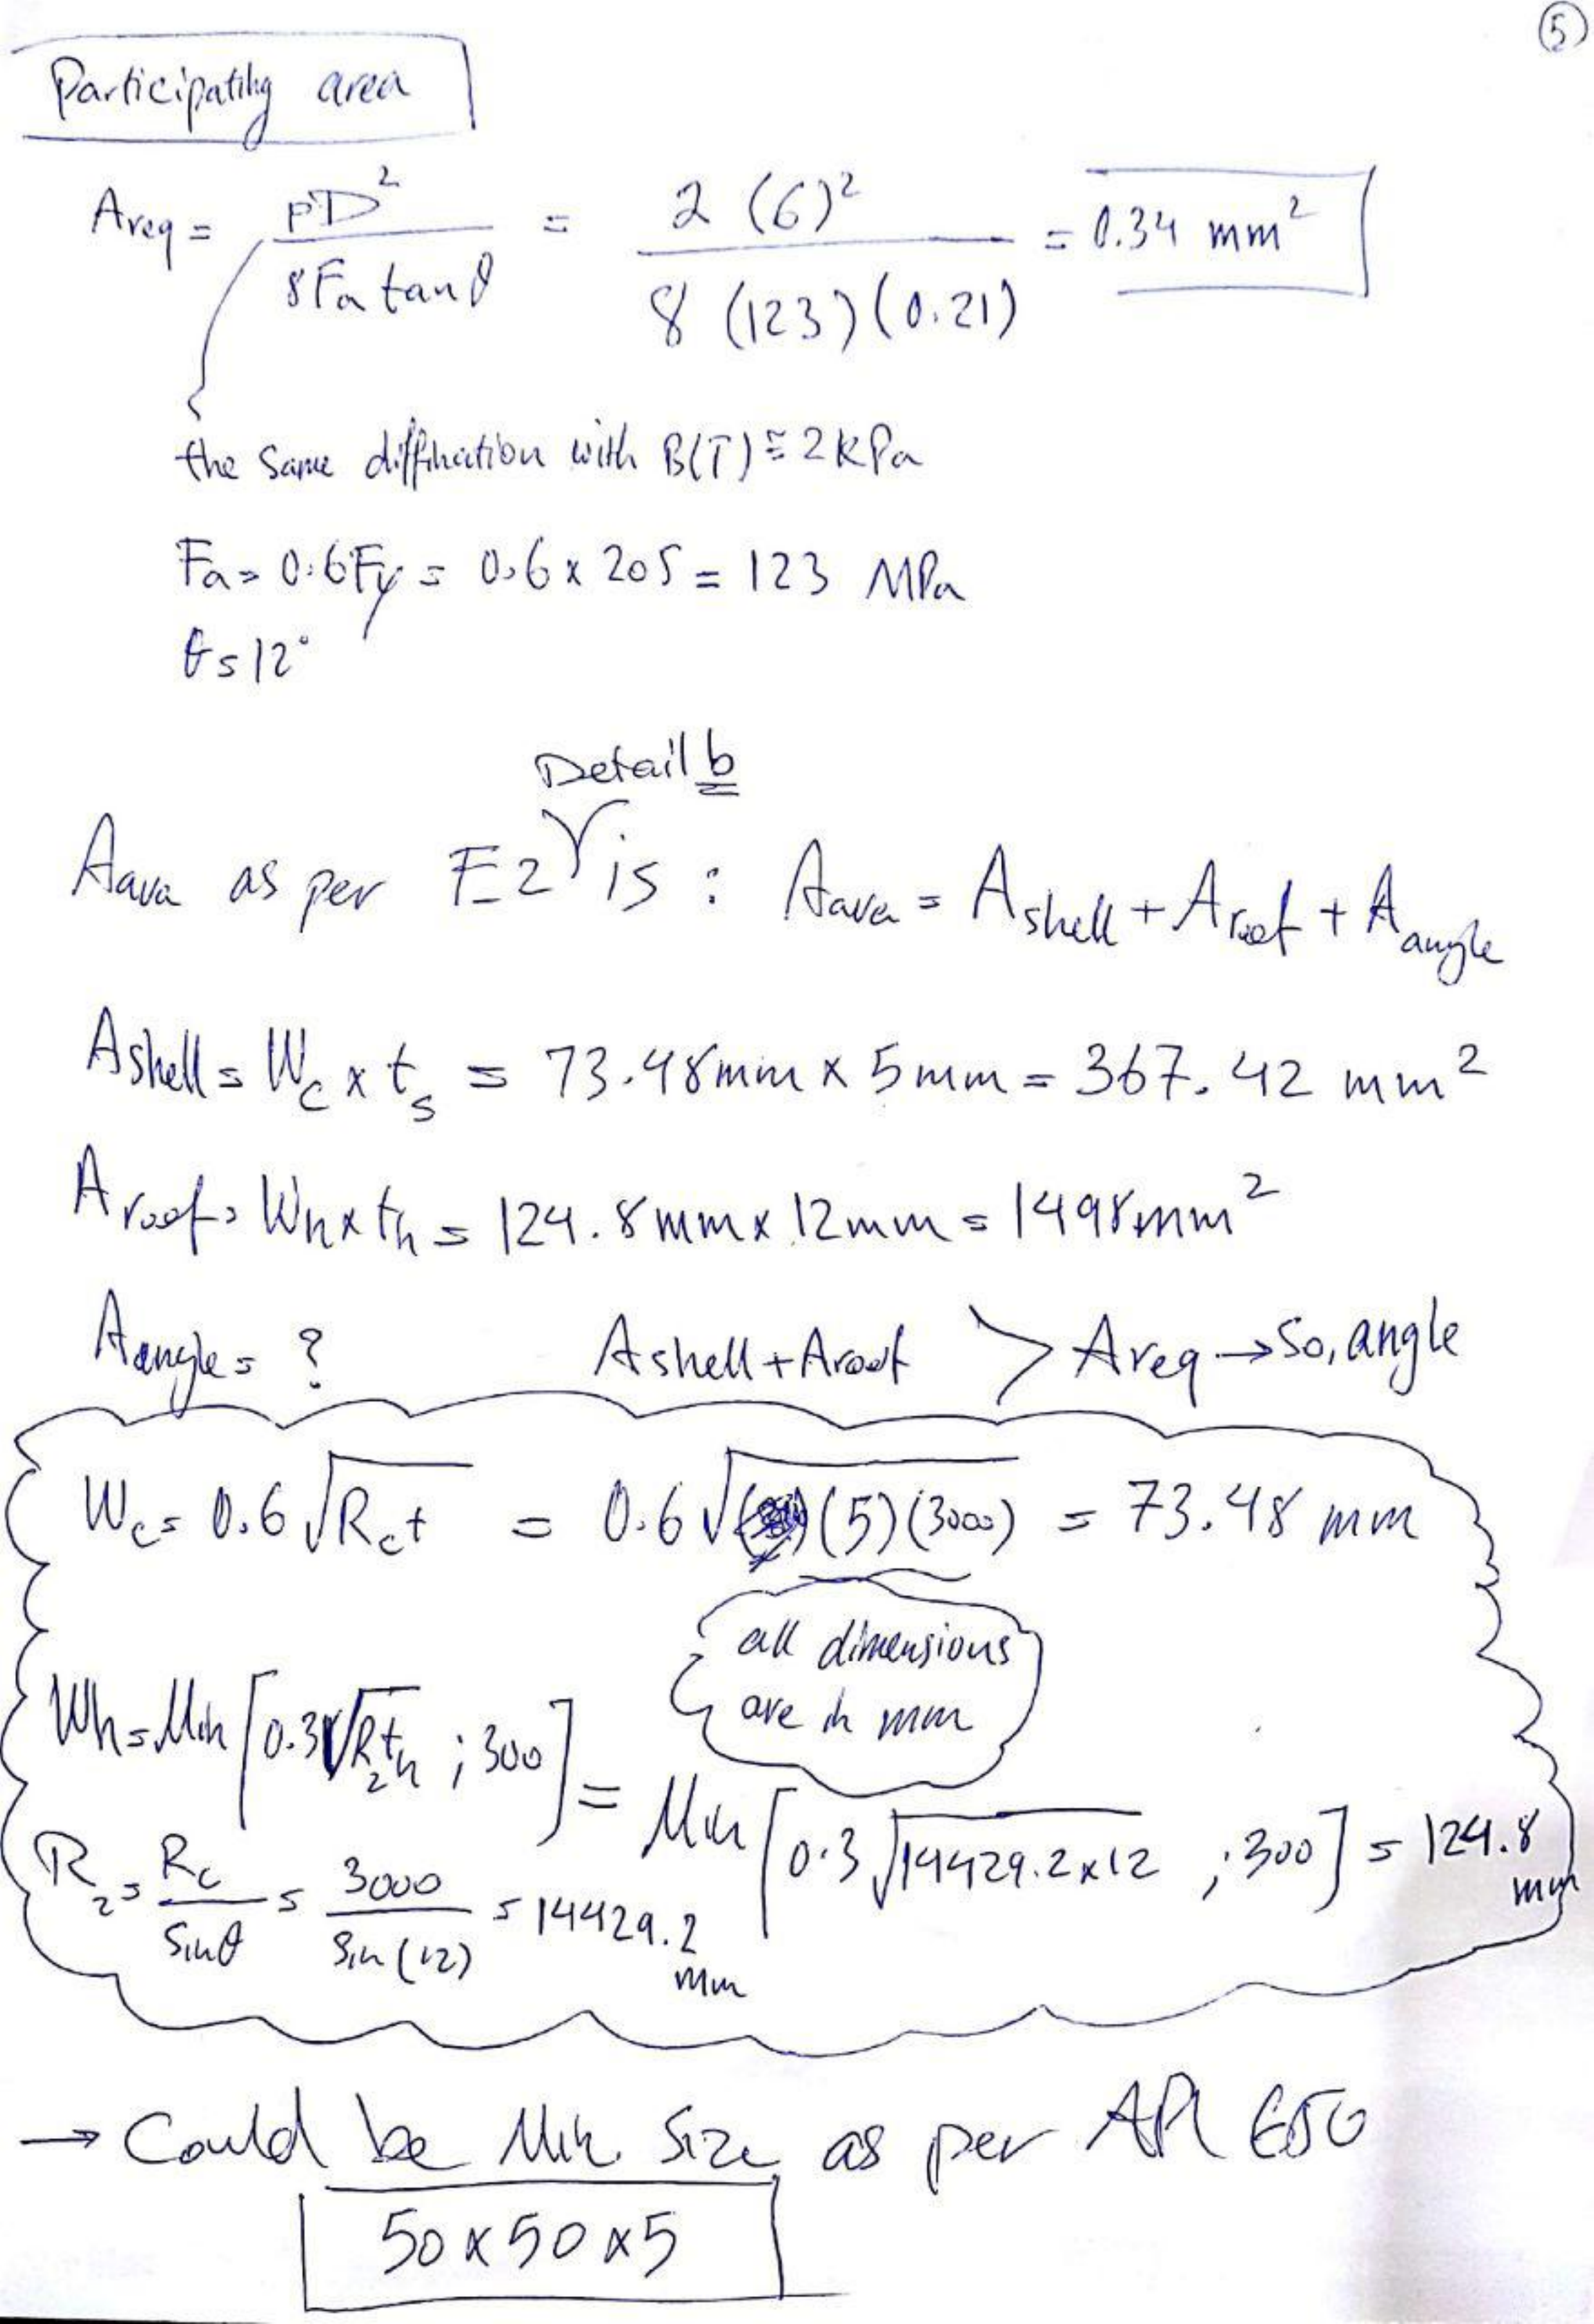 5
Participating area
Areq = pD² / 8Fa tanθ = 2 (6)² / 8 (123)(0.21) = 0.34 mm²
the same diffination with B(T) ≅ 2 kPa
Fa = 0.6Fy = 0.6 x 205 = 123 MPa
θ = 12°
Detail b
Aava as per F-2 is : Aava = Ashell + Aroof + Aangle
Ashell = Wc x ts = 73.48mm x 5mm = 367.42 mm²
Aroof = Wh x th = 124.8mm x 12mm = 1498mm²
Aangle = ? Ashell + Aroof > Areq → So, angle
Wc = 0.6 √Rct = 0.6 √(5)(3000) = 73.48 mm
all dimensions
are in mm
Wh = Min [0.3√R2th ; 300] = Min [0.3√14429.2x12 ; 300] = 124.8 mm
R2 = Rc / Sinθ = 3000 / Sin(12) = 14429.2 mm
→ Could be Min. Size as per API 650
50 x 50 x 5